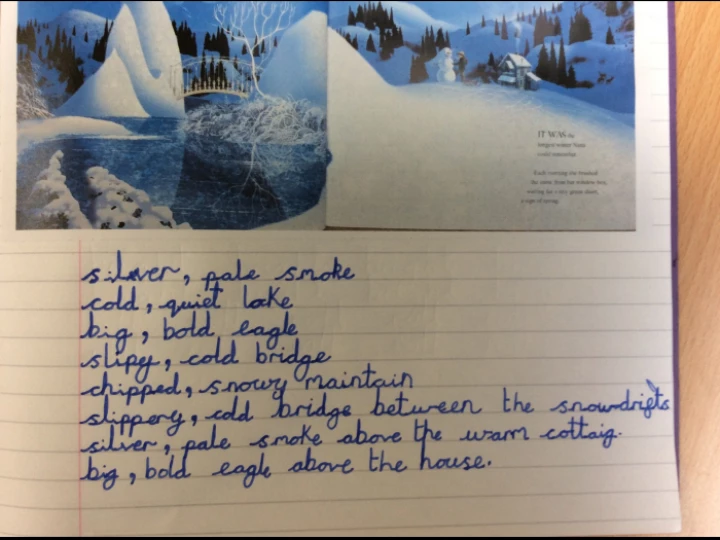 IT WAS the
longest winter Nora
could remember.
Each morning she brushed
the snow from her window box,
waiting for a tiny green shoot,
a sign of spring.
silver, pale smoke
cold, quiet lake
big, bold eagle
slipy, cold bridge
chipped, snowy maintain
slippery, cold bridge between the snowdrifts
silver, pale smoke above the warm cottaig.
big, bold eagle above the house.